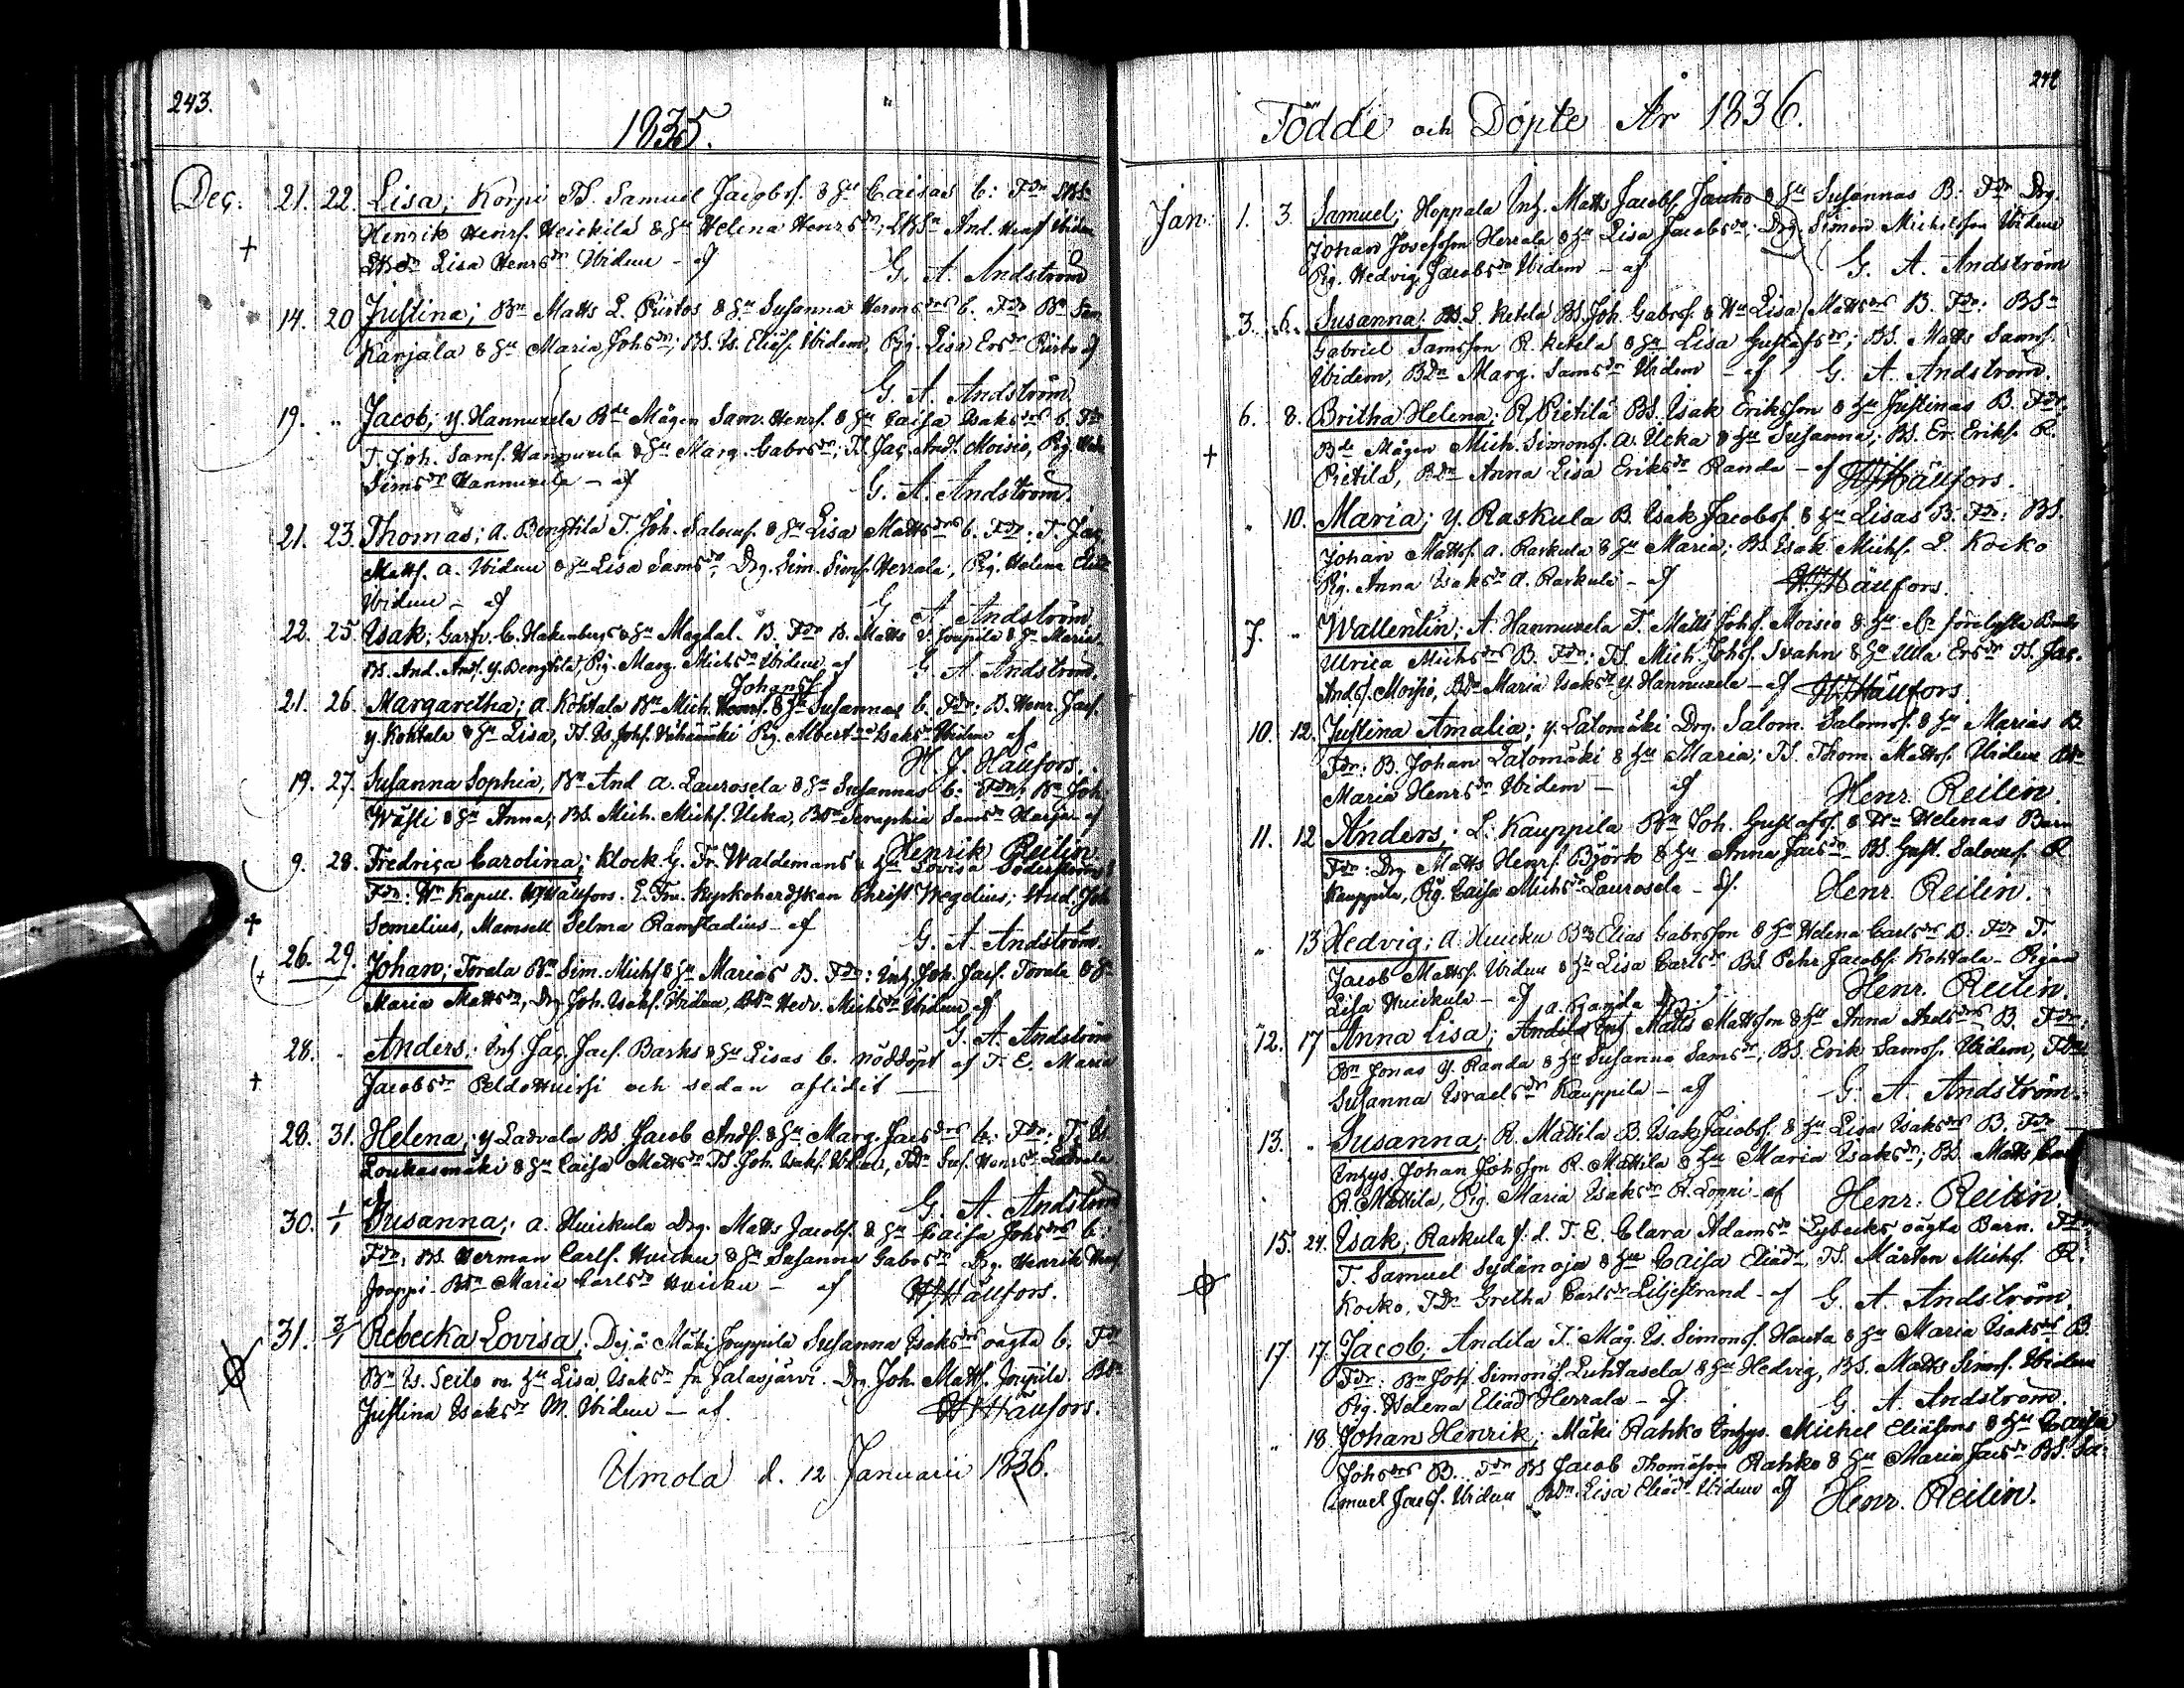 243.
1835.
Dec: 21. 22. Lisa; Korpi TS. Samuel Jacobss. & Hu Caisas b: Fdr
Henrik Henrs. Heickilä & Hu Helena Henrsdr; And. Henrs Ibidem
Lisa Henrsdr Ibidem - af
G. A. Andström
14. 20 Justina; Bn Matts L. Purtos & Hu Susanna b. Fdr Bn Sam
Karjala & Hu Maria Johsdr; BS. Is. Eliæs. Ibidem, Pig. Lisa Ersdr af
G. A. Andström
19. " Jacob; y. Hannuxela Bde Mågen Sam. Henrs. & Hu Caisa Isaksdrs b. Fdr
T. Joh. Sams. Hannuxela & Hu Marg. Gabrsdr; TS. Jac. Ands. Moisio, Pig.
Simsdr Hannuxela - af
G. A. Andström.
21. 23. Thomas; a. Bengtila T. Joh. Saloms. & Hu Lisa Mattsdrs b. Fdr: T. Jac.
Matts. a. Ibidem & Hu Lisa Samsdr, Drg. Sim. Sims. Herrala, Pig. Helena
Ibidem - af
G. A. Andström
22. 25. Isak; Garfv. C. Hakenbergs & Hu Magdal. B. Fdr B. Matts Y. Joupila & Hu Maria.
BS. And. Ands. y. Bengtila, Pig. Marg. Michsdr Ibidem af G. A. Andström.
Johanss.
21. 26. Margaretha; a. Kohtala Bn Mich. & Hu Susannas b. Fdr: B. Henr. Jacs.
y. Kohtala & Hu Lisa, TS. Is. Johs. Pig. Albertina Isaksdr Ibidem af
H. J. Häufors.
19. 27. Susanna Sophia, Bn And a. Laurosela & Hu Susannas b: Fdr: Bn Joh.
& Hu Anna; BS. Mich. Michs. Ucka, BDn Seraphia Samsdr Harja af
Henrik Reilin
9. 28. Fredrica Carolina; Klock. G. Fr. Waldemans & Hu Lovisa Söderströms
Fdr: Hn Kapell. HJHäufors. E. Fru Kyrkoherdskan Christ. Wegelius; Stud. Joh
Somelius, Mamsell Selma Ramstadius - af
G. A. Andström
26. 29. Johan; Torala Bn Sim. Michs & Hu Marias B. Fdr: Inh. Joh. Jacs. Torala & Hu
Maria Mattsdr, Drg Joh. Isaks. Ibidem, BDn Hedv. Michsdr Ibidem af
G. A. Andström
28. " Anders; Inh. Jac. Jacs. Barks & Hu Lisas b. nöddöpt af T. E. Maria
Jacobsdr och sedan aflidit
28. 31. Helena; y Ladvala BS. Jacob Ands. & Hu Marg. Jacsdrs b: Fdr: T. Is.
Loukasmäki & Hu Caisa Mattsdr TS. Joh. Isaks. Ibidem, TDn Sus. Henrsdr Ladvala
G. A. Andström
30. 1/1 Susanna; a. Huickula Drg. Matts Jacobs. & Hu Caisa Johsdrs b.
Fdr: BS. Herman Carls. Huicku & Hu Susanna Gabrsdr Drg. Henrik
Jouppi. BDn Maria Carlsdr Huicku - af HJHäufors.
31. 3/1 Rebecka Lovisa; Dej. å Mäki Jouppila Susanna Isaksdrs oägta b. Fdr
Bn Is. Seilo m. Hu Lisa Isaksdr fr Jalasjärvi. Drg Joh. Matts. Joupila. BDn
Justina Isaksdr M. Ibidem - af. HJHäufors.
Umola d. 12 Januarii 1836.
Födde och Döpte År 1836.
Jan: 1. 3. Samuel; Hoppala Inh. Matts Jacobs. & Hu Susannas B. Fdr Drg.
Johan Josefsson Herrala & Hu Lisa Jacobsdr; Drg. Simon Michelsson Ibidem
Pig. Hedvig Jacobsdr Ibidem - af G. A. Andström
3. 6. Susanna; L. Ketela BS. Joh. Gabrs. & Hu Lisa Mattsdrs B. Fdr: BSn
Gabriel Samsson R. Ketela & Hu Lisa Gustafsdr; BS. Matts Sams.
Ibidem, BDn Marg. Samsdr Ibidem - af G. A. Andström.
6. 8. Britha Helena; R. Pietilä BS. Isak Eriksson & Hu Justinas B. Fdr:
Bde Mågen Mich. Simons. a. Ucka & Hu Susanna; BS. Er. Eriks. R.
Pietilä, BDn Anna Lisa Eriksdr Randa - af HJHäufors.
" 10. Maria; y. Raskula B. Isak Jacobs. & Hu Lisas B. Fdr: BS.
Johan Matts. a. Raskula & Hu Maria; BS. Isak Michs. L. Kocko
Pig. Anna Isaksdr a. Raskula - af HJHäufors.
7. " Wallentin; A. Hannuxela T. Matts Johs. Moisio & Hu
Ulrica Michsdrs B. Fdr: TS. Mich. Johs. Ivahn & Hu Ulla Ersdr TS. Jac.
Ands. Moisio, BDn Maria Isaksdr y. Hannuxela - af HJHäufors.
10. 12. Justina Amalia; y. Latomäki Drg. Salom. Saloms. & Hu Marias B.
Fdr: B. Johan Latomäki & Hu Maria; TS. Thom. Matts. Ibidem BDn
Maria Henrsdr Ibidem - af Henr. Reilin.
11. 12 Anders; L. Kauppila Bn Joh. Gustafs. & Hu Helenas Barn
Fdr: Drg Matts Henrs. Björk & Hu Anna Jacsdr BS. Gust. Saloms. R
Kauppila, Pig. Caisa Michsdr Laurosela - af. Henr. Reilin.
" 13 Hedvig; a. Huicku Bn Elias Gabrsson & Hu Helena Carlsdrs B. Fdr T.
Jacob Matts. Ibidem & Hu Lisa Carlsdr BS. Pehr Jacobs. Kohtala - Pigan
Lisa Huickula - af Henr. Reilin.
a. Randa
12. 17 Anna Lisa; Andila Inh. Matts Mattsson & Hu Anna B. Fdr:
Bn Jonas y. Randa & Hu Susanna Samsdr, BS. Erik Samss. Ibidem,
Susanna Israelsdr Kauppila - af G. A. Andström.
13. " Susanna; R. Mattila B. Isak Jacobs. & Hu Lisa Isaksdrs B. Fdr
Inhys. Johan Johsson R. Mattila & Hu Maria Isaksdr; BS. Matts
R. Mattila, Pig. Maria Isaksdr R. Loppi - af Henr. Reilin.
15. 24. Isak; Raskula f. d. T. E. Clara Adamsdr Lybecks oägta Barn. Fdr
T. Samuel Sydänoja & Hu Caisa Eliædr, TS. Mårten Michs. R.
Kocko, TDn Gretha Carlsdr Liljestrand - af G. A. Andström.
17. 17. Jacob; Andila T. Måg. Is. Simons. Hauta & Hu Maria Isaksdrs B.
Fdr: Bn Joh. Simons. Luhtasela & Hu Hedvig, BS. Matts Simss. Ibidem
Pig. Helena Eliædr Herrala - af G. A. Andström.
" 18. Johan Henrik; Mäki Rahko Inhys. Michel Eliæsons & Hu Caisa
Johsdrs B. Fdr BS Jacob Thomasson Rahko & Hu Maria Jacsdr BS. Sa-
muel Jacs. Ibidem BDn Lisa Eliædr Ibidem af Henr. Reilin.